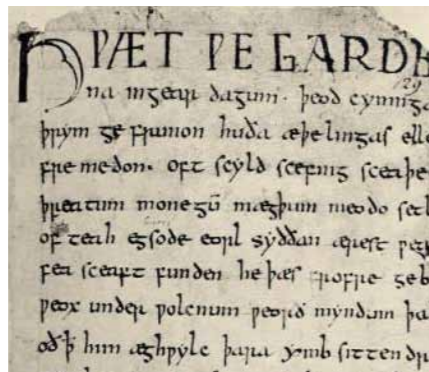 HǷÆT ǷE GARDE
29
na ingear dagum. þeod cyninga
þrym ge frunon huða æþelingas elle
fre medon. oft scyld scefing sceaþe
þreatum monegū mægþum meodo setl
of teah egsode eorl syððan ærest ƿea
fea sceaft funden he þæs frofre geb
ƿeox under ƿolcnum ƿeorð myndum þa
oð ꝥ him æghƿylc þara ymb sittendr